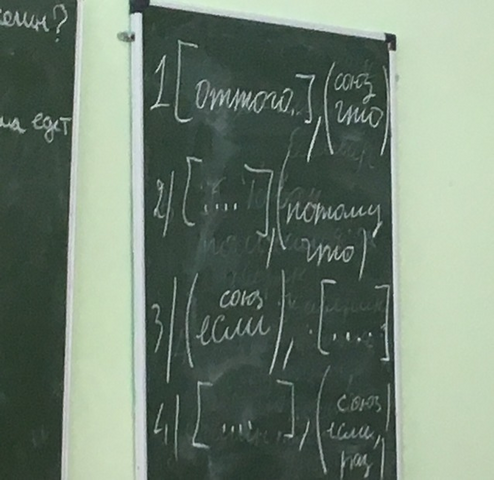 ма едет
1 [оттого..], (союз
что)
2) [....], (потому
что)
3) (союз
если), [....]
4) [.....], (союз
если,
раз)